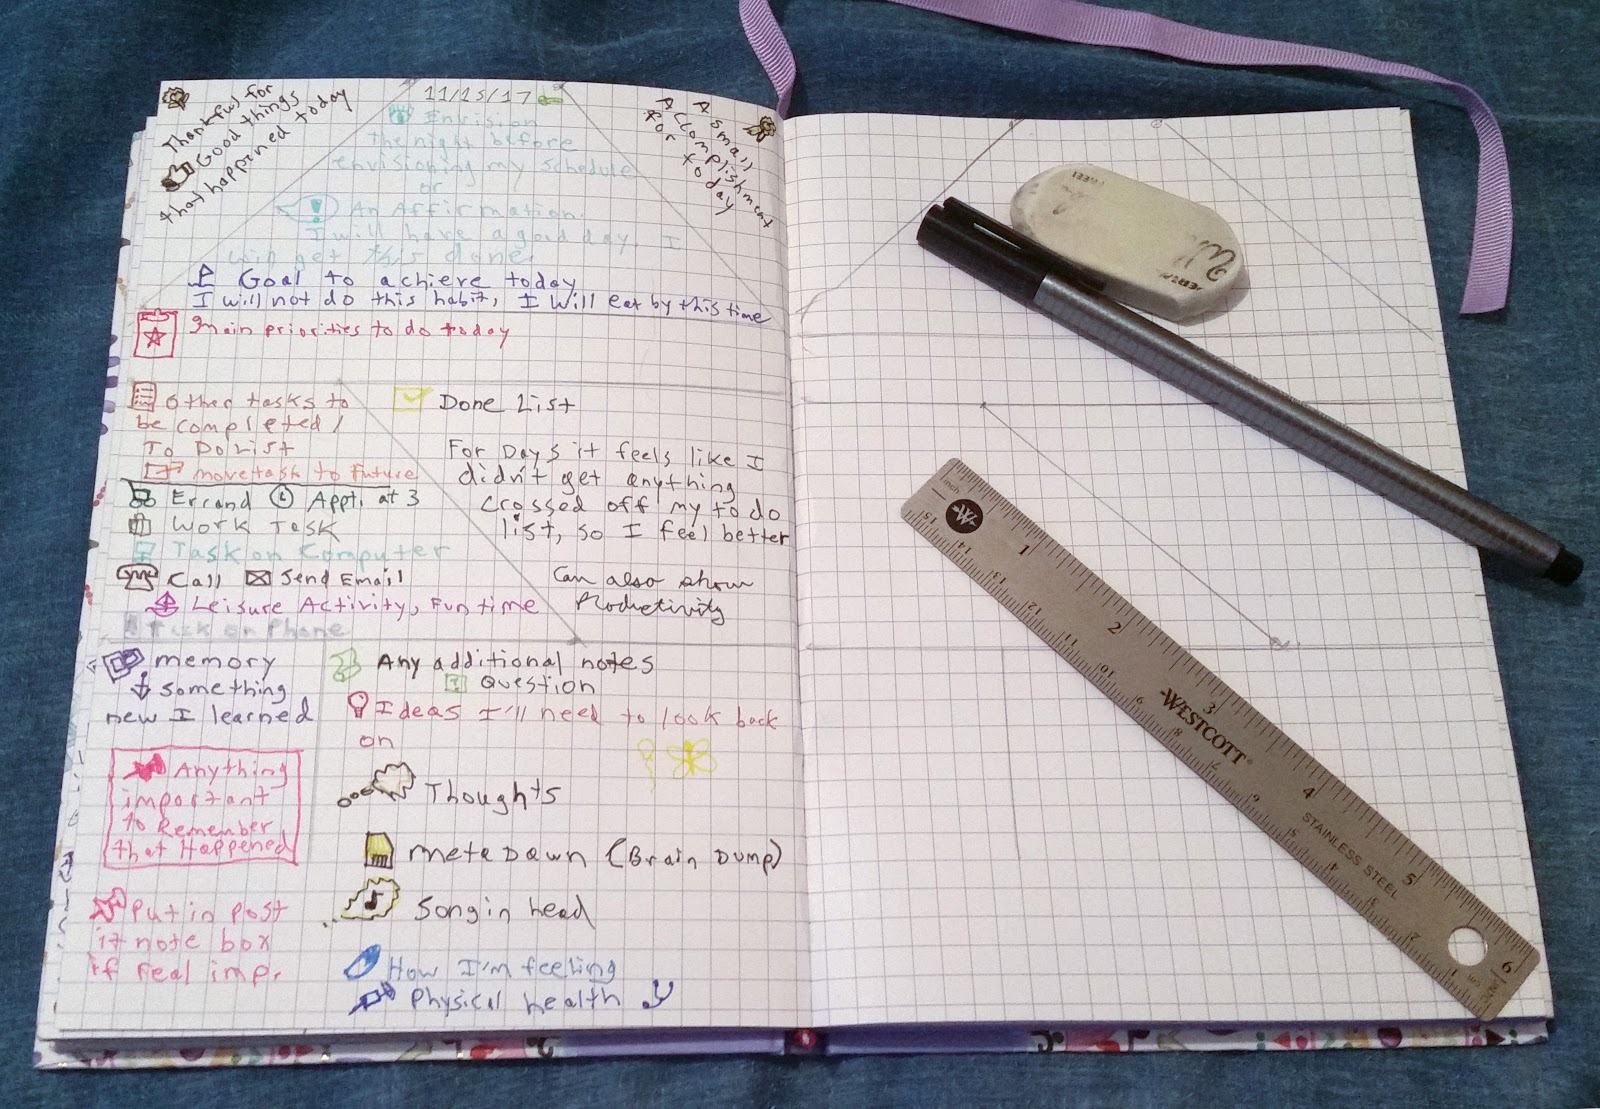 Thankful for
Good things
that happined today
11/25/17
Envision
The night before
envisioning my schedule
or
An Affirmation.
I will have a good day, I
will get this done
A small
Accomplishment
for today
Goal to achieve today
I will not do this habit, I will eat by this time
Main priorities to do today
Other tasks to
be completed/
To Do List
move task to Future
Errand Appt. at 3
Work Task
Task on Computer
Call Send Email
Leisure Activity, Fun time
Task on Phone
Done List
For Days it feels like I
didn't get anything
crossed off my to do
list, so I feel better
Can also show
Productivity
memory
something
new I learned
Anything
important
to Remember
that Happened
Put in post
it note box
if real imp.
Any additional notes
Question
Ideas I'll need to look back
on
Thoughts
meta Dawn (Brain Dump)
Song in head
How I'm feeling
Physical health
inch
W
1 2 3 4 5 6
15 14 13 12 11 10 9 8 7 6 5 4 3 2 1
WESTCOTT®
STAINLESS STEEL